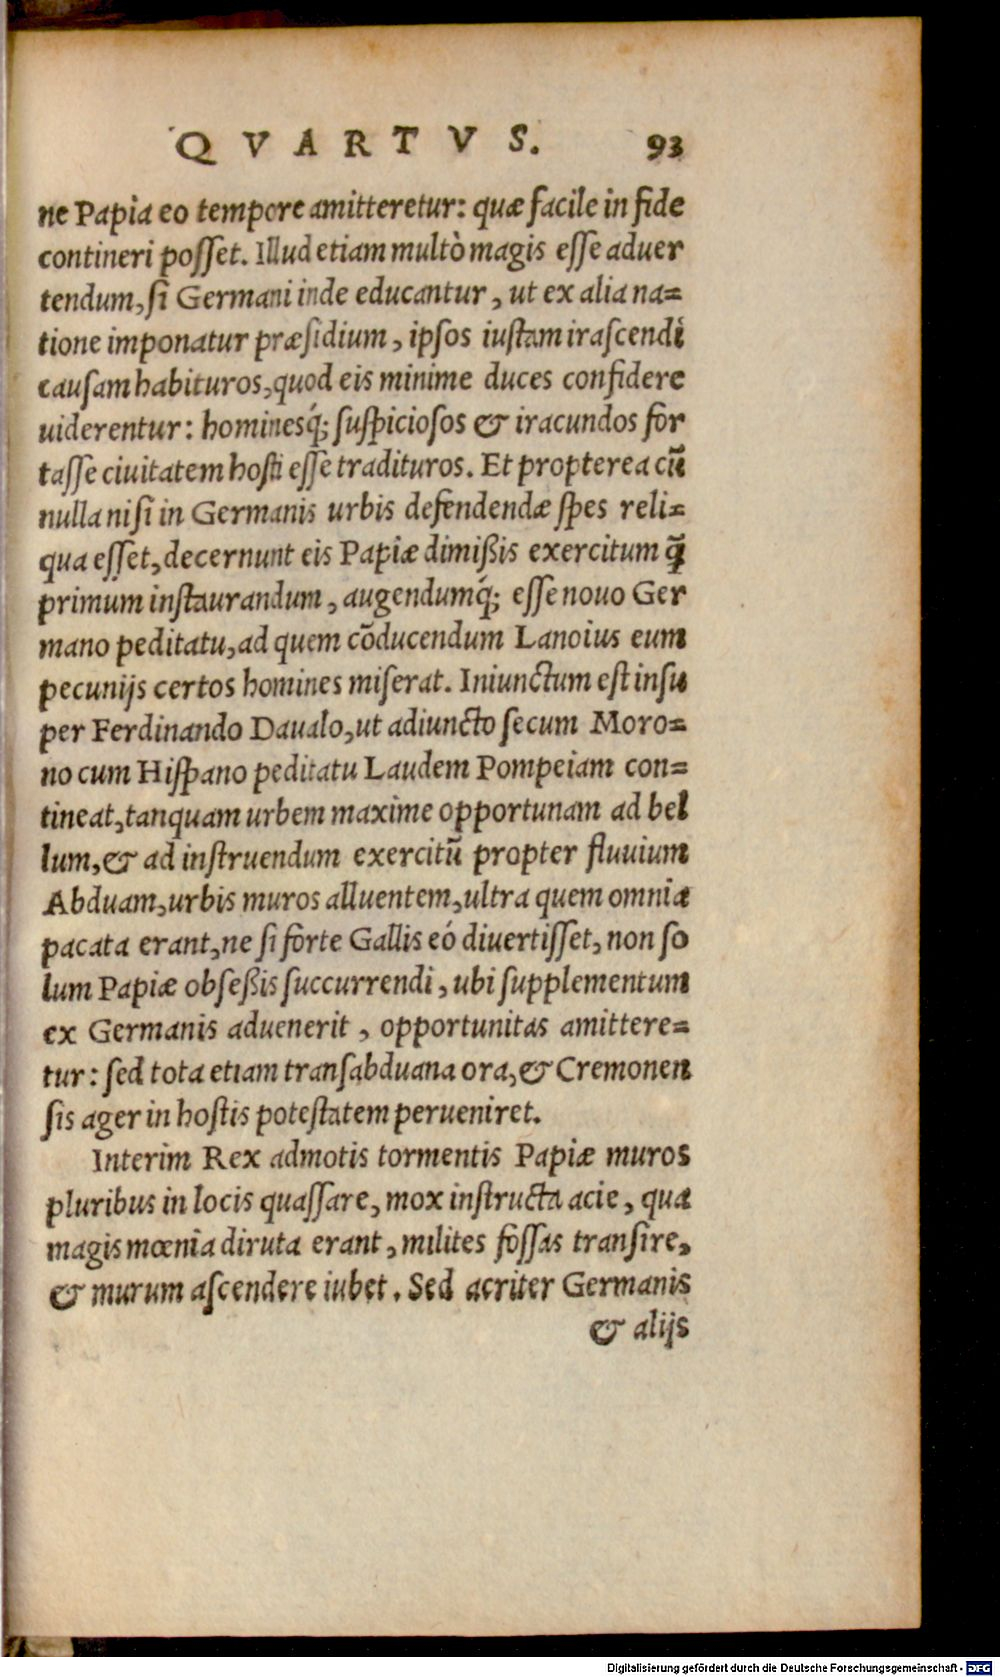 QVARTVS. 93
ne Papia eo tempore amitteretur: quæ facile in fide
contineri posset. Illud etiam multò magis esse aduer
tendum, si Germani inde educantur, ut ex alia na=
tione imponatur præsidium, ipsos iustam irascendi
causam habituros, quod eis minime duces confidere
uiderentur: hominesq́; suspiciosos & iracundos for
tasse ciuitatem hosti esse tradituros. Et propterea cū
nulla nisi in Germanis urbis defendendæ spes reli=
qua esset, decernunt eis Papiæ dimißis exercitum q̃
primum instaurandum, augendumq́; esse nouo Ger
mano peditatu, ad quem cōducendum Lanoius eum
pecunijs certos homines miserat. Iniunctum est insu
per Ferdinando Daualo, ut adiuncto secum Moro=
no cum Hispano peditatu Laudem Pompeiam con=
tineat, tanquam urbem maxime opportunam ad bel
lum, & ad instruendum exercitū propter fluuium
Abduam, urbis muros alluentem, ultra quem omnia
pacata erant, ne si forte Gallis eó diuertisset, non so
lum Papiæ obseßis succurrendi, ubi supplementum
ex Germanis aduenerit, opportunitas amittere=
tur: sed tota etiam transabduana ora, & Cremonen
sis ager in hostis potestatem perueniret.
Interim Rex admotis tormentis Papiæ muros
pluribus in locis quassare, mox instructa acie, qua
magis mœnia diruta erant, milites fossas transire,
& murum ascendere iubet. Sed acriter Germanis
& alijs
Digitalisierung gefördert durch die Deutsche Forschungsgemeinschaft - DFG